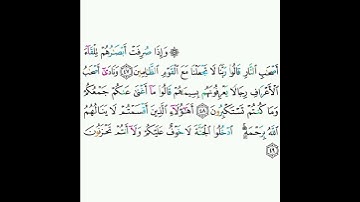 ۞ وَإِذَا صُرِفَتْ أَبْصَٰرُهُمْ تِلْقَآءَ
أَصْحَٰبِ ٱلنَّارِ قَالُوا۟ رَبَّنَا لَا تَجْعَلْنَا مَعَ ٱلْقَوْمِ ٱلظَّٰلِمِينَ ٤٧ وَنَادَىٰٓ أَصْحَٰبُ
ٱلْأَعْرَافِ رِجَالًا يَعْرِفُونَهُم بِسِيمَىٰهُمْ قَالُوا۟ مَآ أَغْنَىٰ عَنكُمْ جَمْعُكُمْ
وَمَا كُنتُمْ تَسْتَكْبِرُونَ ٤٨ أَهَٰٓؤُلَآءِ ٱلَّذِينَ أَقْسَمْتُمْ لَا يَنَالُهُمُ
ٱللَّهُ بِرَحْمَةٍ ۚ ٱدْخُلُوا۟ ٱلْجَنَّةَ لَا خَوْفٌ عَلَيْكُمْ وَلَآ أَنتُمْ تَحْزَنُونَ
٤٩